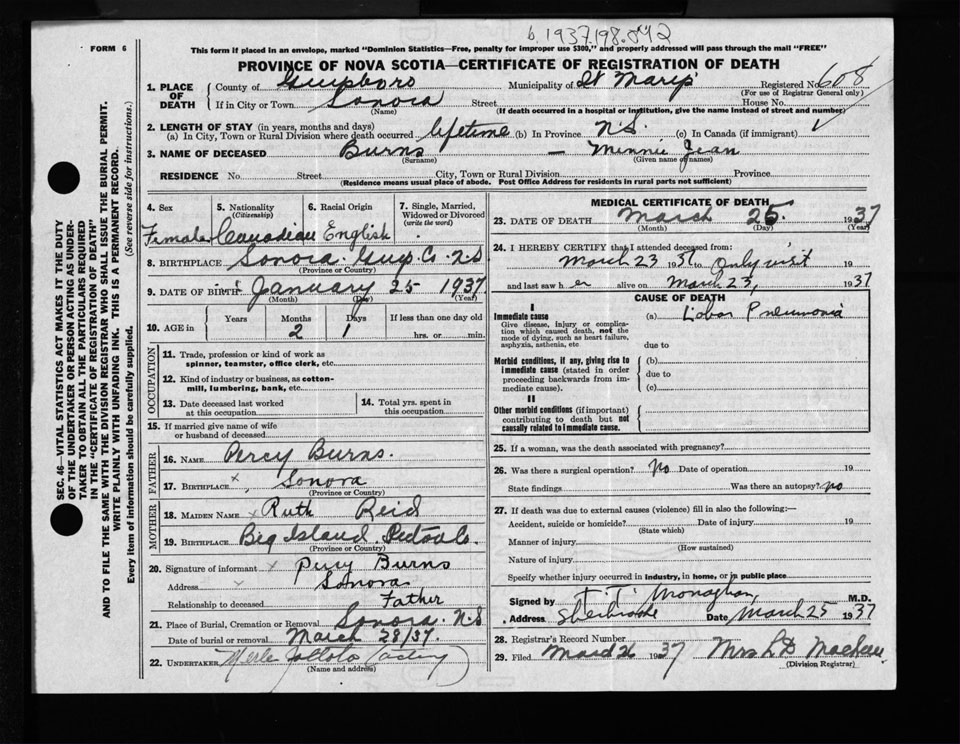 b. 1937.198.042
FORM 6
This form if placed in an envelope, marked "Dominion Statistics—Free, penalty for improper use $300," and properly addressed will pass through the mail "FREE"
PROVINCE OF NOVA SCOTIA—CERTIFICATE OF REGISTRATION OF DEATH
1. PLACE OF DEATH { County of Guysboro Municipality of St Mary's Registered No. 608
(For use of Registrar General only)
If in City or Town Sonora Street House No.
(Name) (If death occurred in a hospital or institution, give the name instead of street and number)
2. LENGTH OF STAY (in years, months and days)
(a) In City, Town or Rural Division where death occurred lifetime (b) In Province N.S. (c) In Canada (if immigrant) ✓
3. NAME OF DECEASED Burns — Minnie Jean
(Surname) (Given name or names)
RESIDENCE No. Street City, Town or Rural Division Province
(Residence means usual place of abode. Post Office Address for residents in rural parts not sufficient)
4. Sex 5. Nationality (Citizenship) 6. Racial Origin 7. Single, Married, Widowed or Divorced (write the word)
Female Canadian English
8. BIRTHPLACE Sonora. Guys. Co. N.S
(Province or Country)
9. DATE OF BIRTH January 25 1937
(Month) (Day) (Year)
10. AGE in Years Months Days If less than one day old
2 1 hrs. or min.
OCCUPATION
11. Trade, profession or kind of work as spinner, teamster, office clerk, etc.
12. Kind of industry or business, as cotton-mill, lumbering, bank, etc.
13. Date deceased last worked at this occupation
14. Total yrs. spent in this occupation
15. If married give name of wife or husband of deceased
FATHER
16. NAME Percy Burns.
17. BIRTHPLACE x Sonora
(Province or Country)
MOTHER
18. MAIDEN NAME x Ruth Reid
19. BIRTHPLACE Big Island. Pictou Co.
(Province or Country)
20. Signature of informant x Percy Burns
Address x Sonora
Relationship to deceased Father
21. Place of Burial, Cremation or Removal Sonora. N.S
Date of burial or removal March 28/37.
22. UNDERTAKER Merle (acting)
(Name and address)
MEDICAL CERTIFICATE OF DEATH
23. DATE OF DEATH March 25. 1937
(Month) (Day) (Year)
24. I HEREBY CERTIFY that I attended deceased from:
March 23 1937 to Only visit 19
and last saw h er alive on March 23, 1937
CAUSE OF DEATH
I
Immediate cause (a) Lobar Pneumonia
Give disease, injury or complication which caused death, not the mode of dying, such as heart failure, asphyxia, asthenia, etc
due to
Morbid conditions, if any, giving rise to immediate cause (stated in order proceeding backwards from immediate cause).
(b)
due to
(c)
II
Other morbid conditions (if important) contributing to death but not causally related to immediate cause.
25. If a woman, was the death associated with pregnancy?
26. Was there a surgical operation? No Date of operation 19
State findings Was there an autopsy? no
27. If death was due to external causes (violence) fill in also the following:—
Accident, suicide or homicide? Date of injury 19
(State which)
Manner of injury
(How sustained)
Nature of injury
Specify whether injury occurred in industry, in home, or in public place
Signed by T. T. Monaghan, M.D.
Address Sherbrooke Date March 25 1937
28. Registrar's Record Number
29. Filed March 26 1937 Mrs
(Division Registrar)
SEC. 46—VITAL STATISTICS ACT MAKES IT THE DUTY
OF THE UNDERTAKER OR PERSON ACTING AS UNDERTAKER
TO OBTAIN ALL THE PARTICULARS REQUIRED
IN THE "CERTIFICATE OF REGISTRATION OF DEATH"
AND TO FILE THE SAME WITH THE DIVISION REGISTRAR WHO SHALL ISSUE THE BURIAL PERMIT.
WRITE PLAINLY WITH UNFADING INK. THIS IS A PERMANENT RECORD.
Every item of information should be carefully supplied. (See reverse side for instructions.)